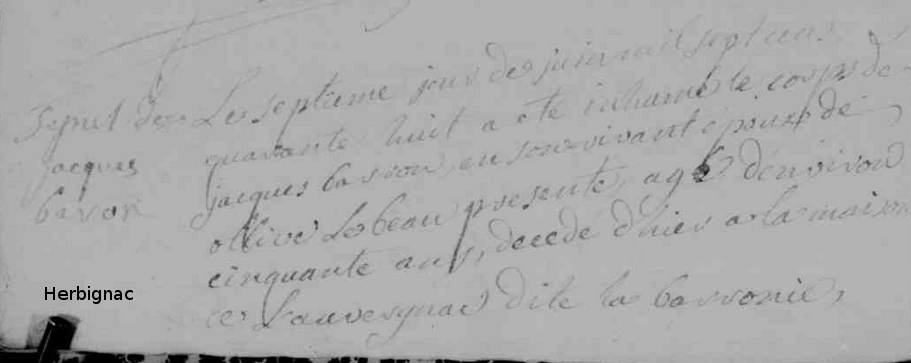 Sepul de
jacques
baron
Le septieme jour de juin mil sept cens
quarante huit a ete inhumé le corps de
jacques barron, en son vivant epoux de
ollive Lebeau presente, agé d'environ
cinquante ans, decede d'hier a la maison
de Lauvergnac dite la barronie,
Herbignac